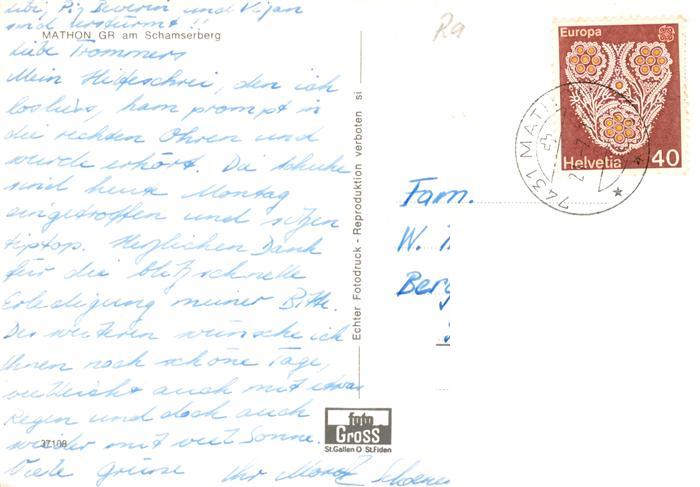 Piz Beverin und
sind erstürmt !!
MATHON GR am Schamserberg
Liebe Trommers
Mein Hilfeschrei, den ich
losliess, kam prompt in
die rechten Ohren und
wurde erhört. Die Schuhe
sind heute Montag
eingetroffen und sitzen
tiptop. Herzlichen Dank
für die blitzschnelle
Erledigung meiner Bitte.
Des weiteren wünsche ich
Ihnen noch schöne Tage,
vielleicht auch mit etwas
Regen und doch auch
wieder mit viel Sonne.
Viele Grüsse Ihr
37108
Echter Fotodruck - Reproduktion verboten si
foto
Gross
St.Gallen O St.Fiden
Ra
Europa
Helvetia 40
7431 MATH
Fam.
W.
Berg